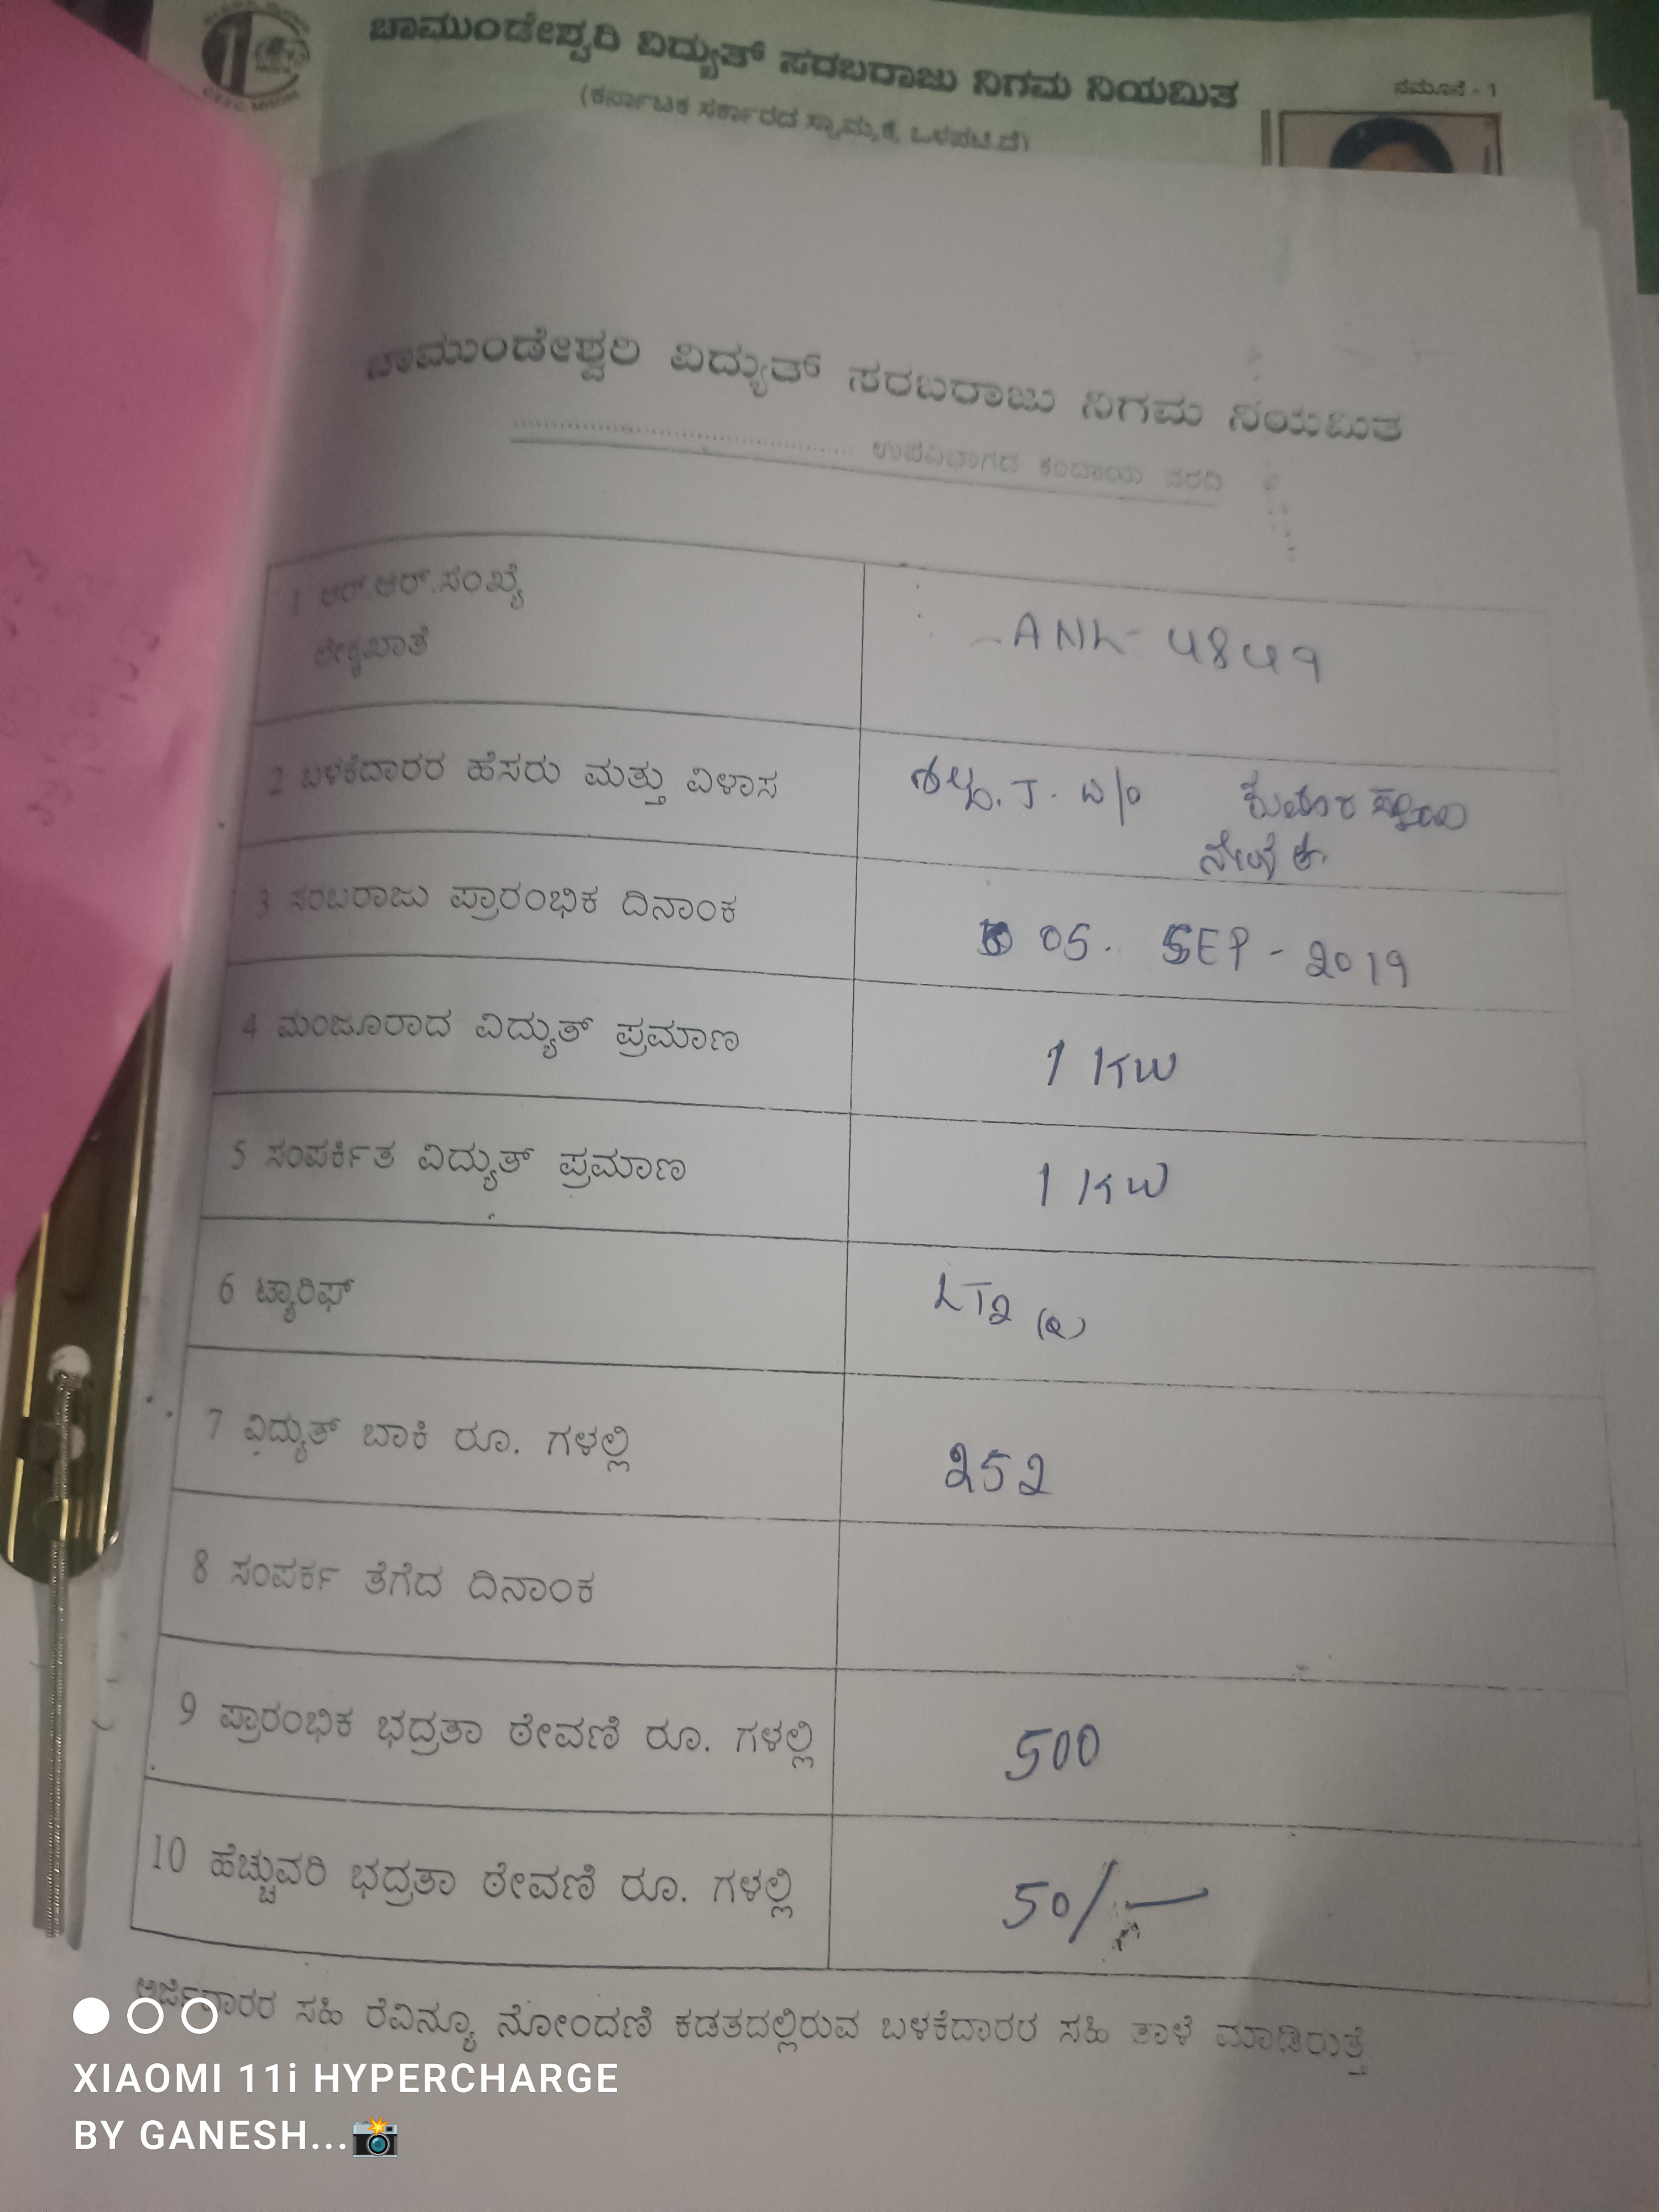 ಚಾಮುಂಡೇಶ್ವರಿ ವಿದ್ಯುತ್ ಸರಬರಾಜು ನಿಗಮ ನಿಯಮಿತ
ನಮೂನೆ - 1
(ಕರ್ನಾಟಕ ಸರ್ಕಾರದ ಸ್ವಾಮ್ಯಕ್ಕೆ ಒಳಪಟ್ಟಿದೆ)
ಚಾಮುಂಡೇಶ್ವರಿ ವಿದ್ಯುತ್ ಸರಬರಾಜು ನಿಗಮ ನಿಯಮಿತ
ಉಪವಿಭಾಗದ ಕಂದಾಯ ವರದಿ
1 ಆರ್.ಆರ್.ಸಂಖ್ಯೆ
ಲೆಕ್ಕಖಾತೆ
4849
2 ಬಳಕೆದಾರರ ಹೆಸರು ಮತ್ತು ವಿಳಾಸ
J.
3 ಸರಬರಾಜು ಪ್ರಾರಂಭಿಕ ದಿನಾಂಕ
05. SEP - 2019
4 ಮಂಜೂರಾದ ವಿದ್ಯುತ್ ಪ್ರಮಾಣ
1 KW
5 ಸಂಪರ್ಕಿತ ವಿದ್ಯುತ್ ಪ್ರಮಾಣ
1 KW
6 ಟ್ಯಾರಿಫ್
LT2
7 ವಿದ್ಯುತ್ ಬಾಕಿ ರೂ. ಗಳಲ್ಲಿ
252
8 ಸಂಪರ್ಕ ತೆಗೆದ ದಿನಾಂಕ
9 ಪ್ರಾರಂಭಿಕ ಭದ್ರತಾ ಠೇವಣಿ ರೂ. ಗಳಲ್ಲಿ
500
10 ಹೆಚ್ಚುವರಿ ಭದ್ರತಾ ಠೇವಣಿ ರೂ. ಗಳಲ್ಲಿ
50/-
ಅರ್ಜಿದಾರರ ಸಹಿ ರೆವಿನ್ಯೂ ನೋಂದಣಿ ಕಡತದಲ್ಲಿರುವ ಬಳಕೆದಾರರ ಸಹಿ ತಾಳೆ ಮಾಡಿರುತ್ತೆ
XIAOMI 11i HYPERCHARGE
BY GANESH...